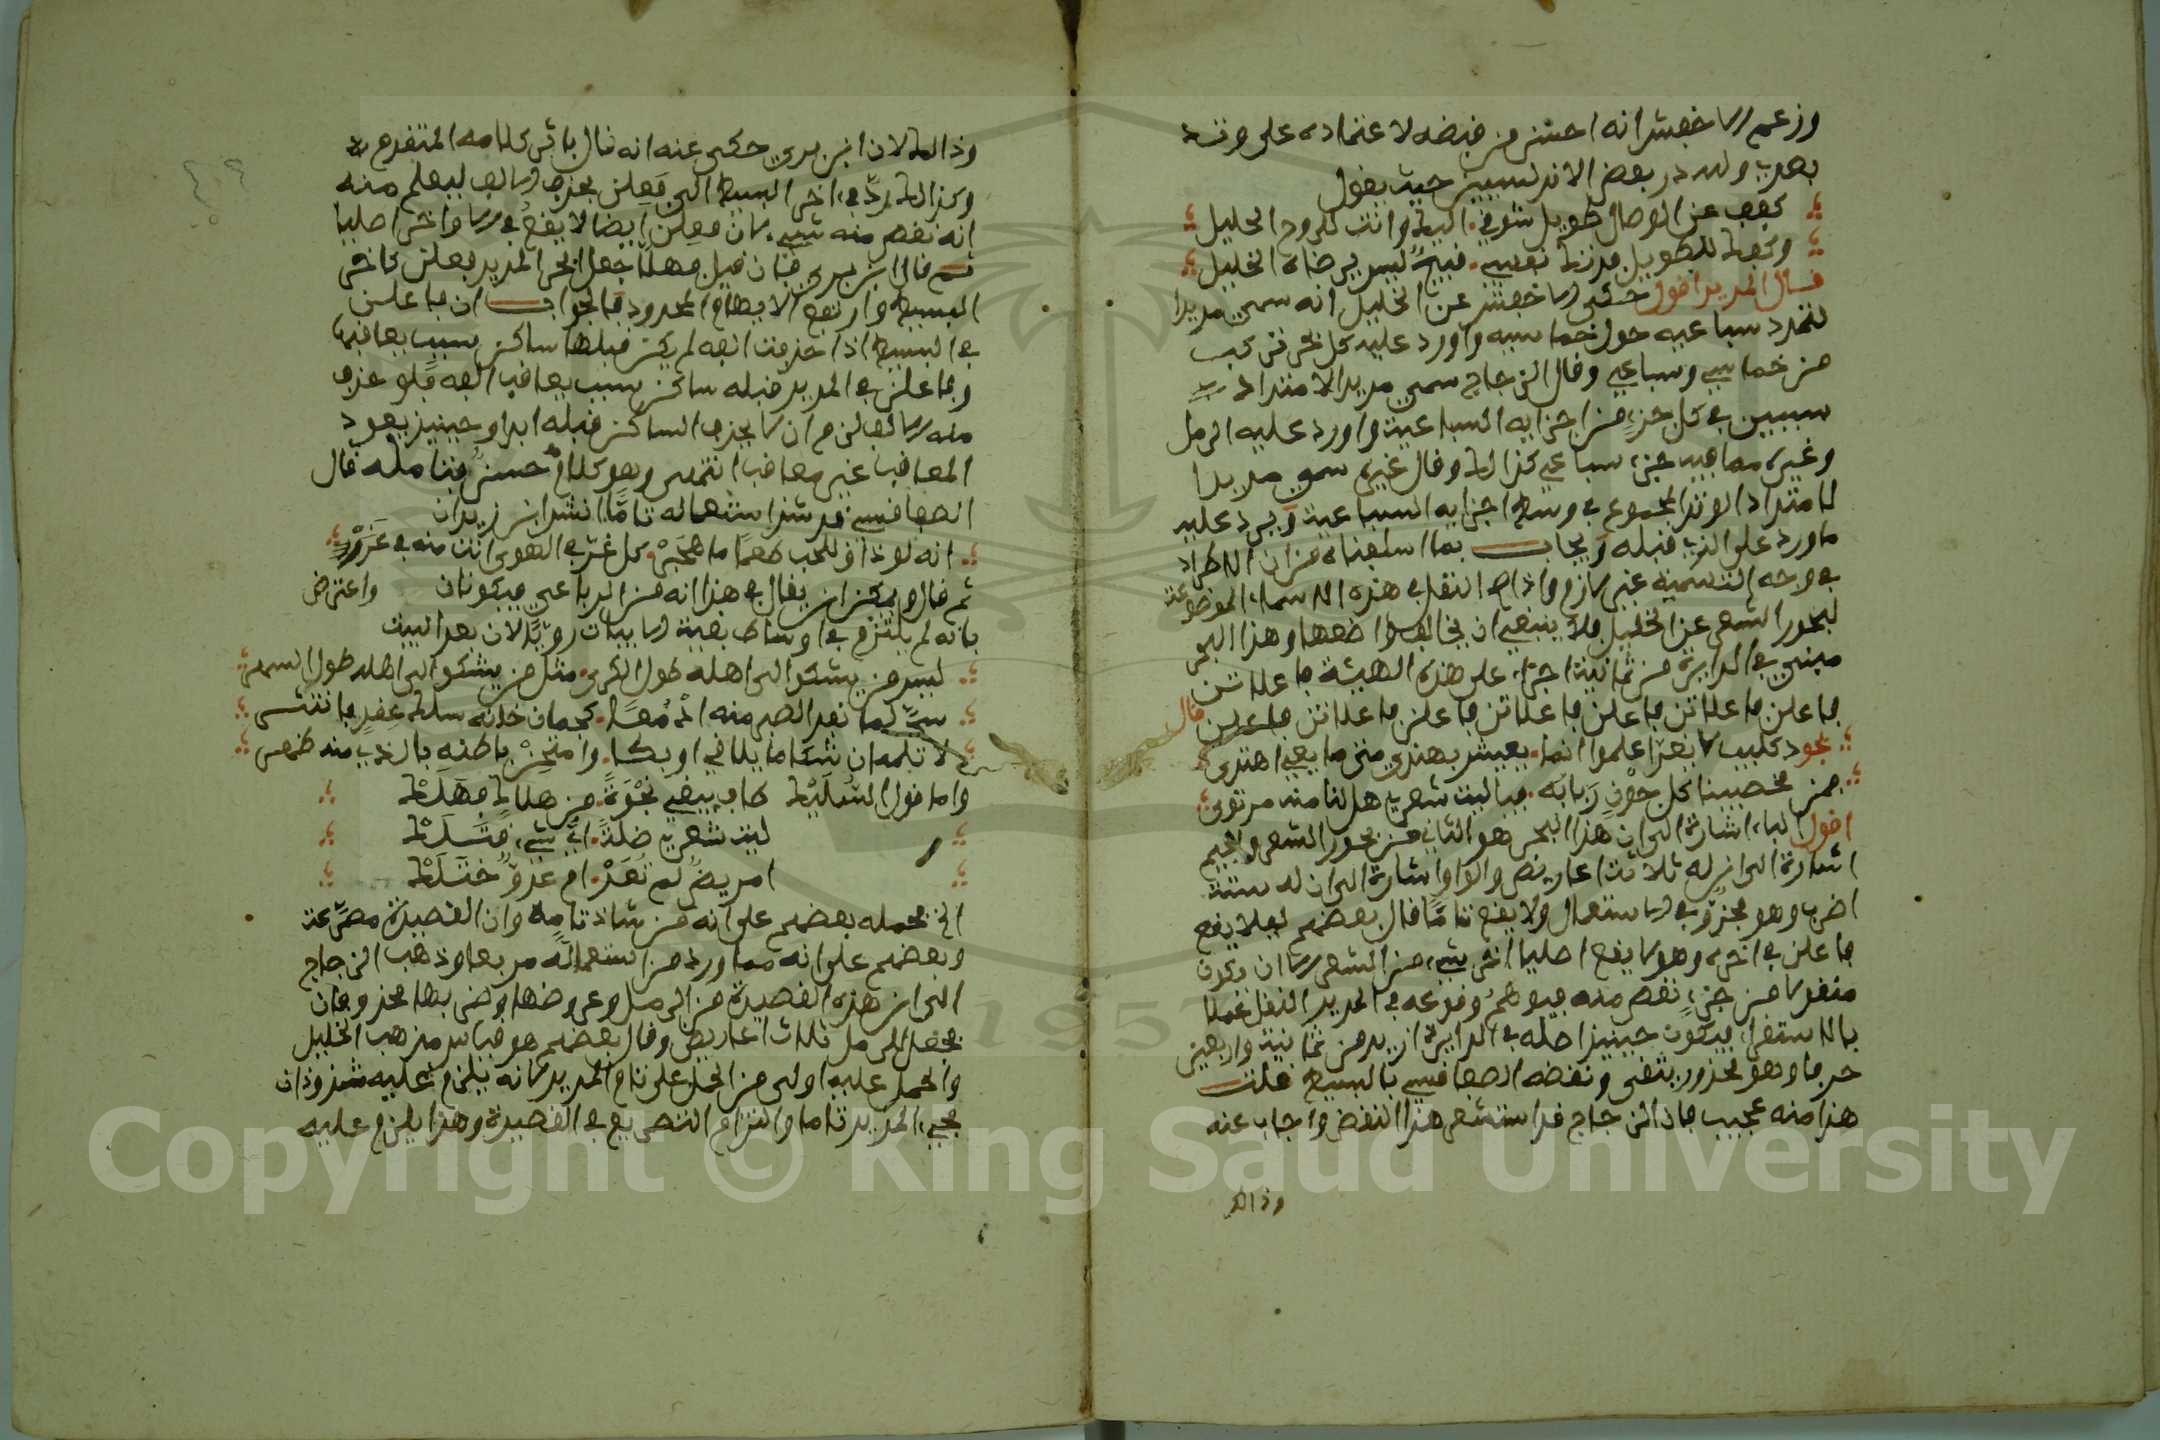 وزعم الاخفش انه احسن من قبضه لاعتماده على وتد
بعده ولله در بعض الاندلسيين حيث يقول
كففت عن الوصال طويل شوقي اليك وانت للروح الخليل
وكفك للطويل فدتك نفسي قبيح ليس يرضاه الخليل
قال المديد اقول حكى الاخفش عن الخليل انه سمي مديدا
لتمدد سباعيه حول خماسيه واورد عليه كل بحر تركب
من خماسي وسباعي وقال الزجاج سمي مديدا لامتداد
سببين في كل جزء من اجزايه السباعية واورد عليه الرمل
وغيره مما فيه جزء سباعي كذالك وقال غيره سمي مديدا
لامتداد الوتد المجموع في وسط اجزايه السباعية ويرد عليه
ما ورد على الذي قبله ويجاب بما اسلفناه من ان الاطراد
في وجه التسمية غير لازم واذا صح النقل في هذه الاسماء الموضوعة
لبحور الشعر عن الخليل فلا ينبغي ان يخالف واضعها وهذا البحر
مبني في الدايرة من ثمانية اجزاء على هذه الهيئة فاعلاتن
فاعلن فاعلاتن فاعلن فاعلاتن فاعلن فاعلاتن فاعلن قال
بجود كليب لا يغر اعلموا انما يعيش بهندي متى ما يعي اهتدى
من مخصبنا كل جون ربابه فيا ليت شعري هل لنا منه مرتوى
اقول الباء اشارة الى ان هذا البحر هو الثاني من بحور الشعر والجيم
اشارة الى ان له ثلاثة اعاريض والواو اشارة الى ان له ستة
اضرب وهو مجزو في الاستعمال ولا يقع تاما قال بعضهم ليلا يقع
فاعلن في اخره وهو لا يقع اصليا اخر شيء من الشعر الا ان يكون
منقولا من جزء نقص منه فيوهم وقوعه في المديد النقل عملا
بالاستقراء فيكون حينيذ اصله في الدايرة ازيد من ثمانية واربعين
حرفا وهو محذور يتقى ونقضه الصفاقسي بالبسيط قلت
هذا منه عجيب فان الزجاج قد استشعر هذا النقض واجاب عنه
وذالك
وذالك لان ابن بري حكى عنه انه قال باثر كلامه المتقدم
وكذالك رد في اخر البسيط الى فعلن بحذف الالف ليعلم منه
انه نقص منه شيء لان فعلن ايضا لا يقع في الاواخر اصليا
ثم قال ابن بري فان قيل فهلا جعل اخر المديد فعلن كاخر
البسيط وارتفع الايهام المحذور فالجواب ان فاعلن
في البسيط اذا حذفت الفه لم يكن قبلها ساكن سبب يعاقبها
وفاعلن في المديد قبله ساكن سبب يعاقب الفه فلو حذف
منه الالف لزم ان لا يحذف الساكن قبله ابدا وحينيذ يعود
المعاقب غير معاقب انتهى وهو كلام حسن فتامله قال
الصفاقسي قد شذ استعماله تاما انشد ابن زيدان
انه لو ذاق للحب طعما ما هجر كل غر في الهوى انت منه في غرور
ثم قال ويمكن ان يقال في هذا انه من الرباعي فيكونان واعترض
بانه لم يلتزم في اوساط بقية الابيات رويا لان بعد البيت
ليس من يشكو الى اهله طول الكرى مثل من يشكو الى اهله طول السهر
سح لما نفد الصبر منه ادمعا كجمان خانه سلك عقد فانتثر
لا تلمه ان شكا ما يلاقي او بكى وامتحن باطنه بالذي منه ظهر
واما قول السليك طاف يبغي نجوة من هلاك فهلك
ليت شعري ضلة اي شيء قتلك
امريض لم تعد ام عدو ختلك
الخ فحمله بعضهم على انه من شاذ تامه وان القصيدة مصرعة
وبعضهم على انه مما ورد من استعماله مربعا وذهب الزجاج
الى ان هذه القصيدة من الرمل وعروضها وضربها محذوفان
فجعل للرمل ثلاث اعاريض وقال بعضهم هو قياس مذهب الخليل
والحمل عليه اولى من الحمل على تام المديد لانه يلزم عليه شذوذان
مجيء المديد تاما والتزام التصريع في القصيدة وهذا يلزم عليه
Copyright © King Saud University
1957